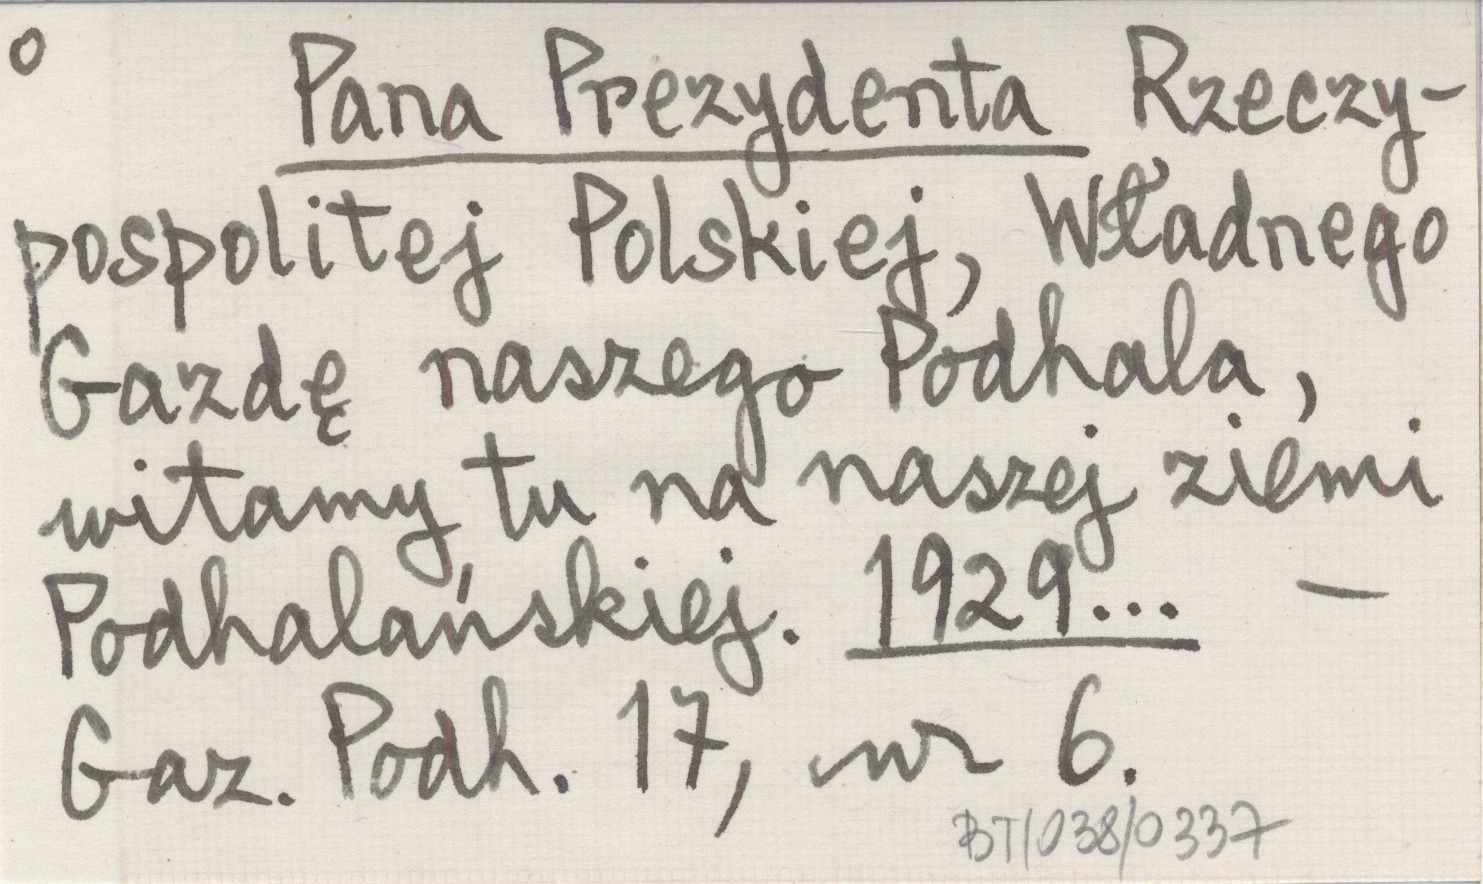 o Pana Prezydenta Rzeczy-
pospolitej Polskiej, Władnego
Gazdę naszego Podhala,
witamy tu na naszej ziemi
Podhalańskiej. 1929... –
Gaz. Podh. 17, nr 6.
BT/038/0337